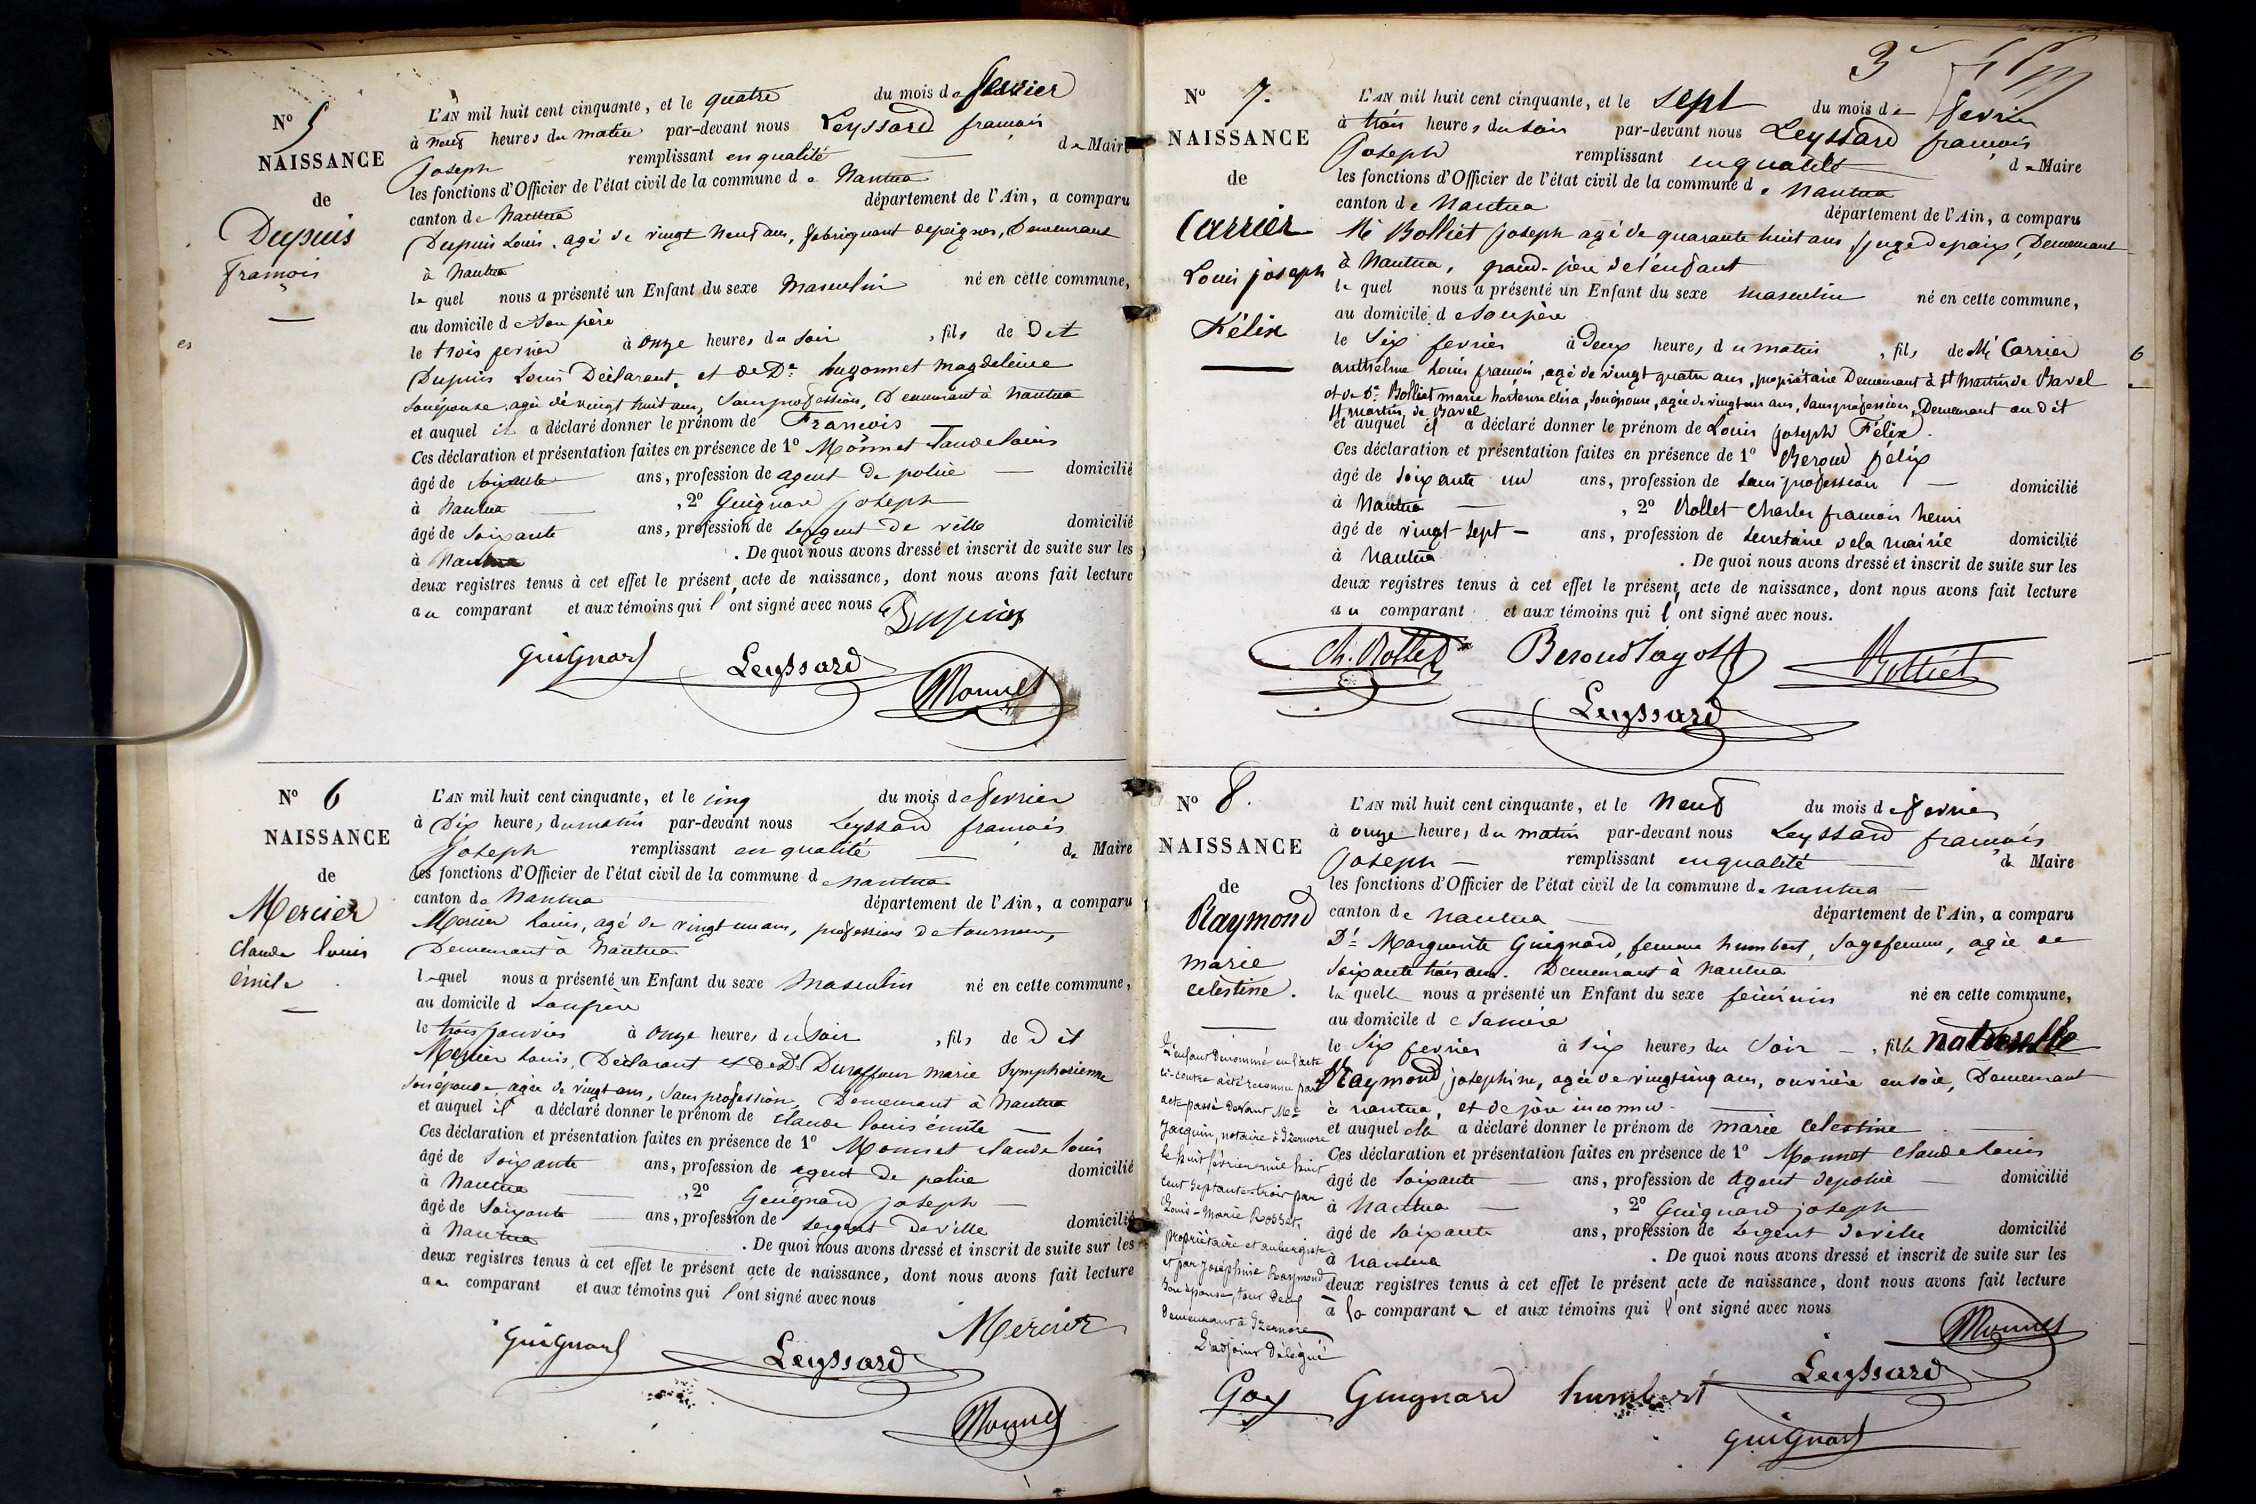 N° 5
NAISSANCE
de
Dupuis
françois
L'AN mil huit cent cinquante, et le quatre du mois de fevrier
à neuf heures du matin par-devant nous Leyssard françois
joseph remplissant en qualité de Maire
les fonctions d'Officier de l'état civil de la commune de Nantua
canton de Nantua département de l'Ain, a comparu
Dupuis Louis, agé de vingt neuf ans, fabriquant de peignes, Demeurant
à Nantua
le quel nous a présenté un Enfant du sexe Masculin né en cette commune,
au domicile de son père
le trois fevrier à onze heures du soir, fils de Dit
Dupuis Louis Déclarant, et de De hugonnet magdeleine
son épouse, agée de vingt huit ans, sans profession, Demeurant à Nantua
et auquel il a déclaré donner le prénom de Francois
Ces déclaration et présentation faites en présence de 1° Monnet Claude Louis
âgé de soixante ans, profession de agent de police domicilié
à Nantua, 2° Guignard joseph
âgé de soixante ans, profession de sergent de ville domicilié
à Nantua. De quoi nous avons dressé et inscrit de suite sur les
deux registres tenus à cet effet le présent acte de naissance, dont nous avons fait lecture
au comparant et aux témoins qui l'ont signé avec nous
Dupuis
Guignard Leyssard
Monnet
N° 6
NAISSANCE
de
Mercier
Claude louis
émile
L'AN mil huit cent cinquante, et le cinq du mois de fevrier
à Dix heures du matin par-devant nous Leyssard françois
joseph remplissant en qualité de Maire
les fonctions d'Officier de l'état civil de la commune de nantua
canton de Nantua département de l'Ain, a comparu
Mercier Louis, agé de vingt un ans, profession de tourneur,
Demeurant à Nantua
lequel nous a présenté un Enfant du sexe Masculin né en cette commune,
au domicile d son père
le trois janvier à onze heures du soir, fils de Dit
Mercier Louis, Déclarant et de De Duraffour marie Symphorienne
son épouse, agée de vingt ans, sans profession, Demeurant à Nantua
et auquel il a déclaré donner le prénom de Claude louis émile
Ces déclaration et présentation faites en présence de 1° Monnet claude louis
âgé de soixante ans, profession de agent de police domicilié
à Nantua, 2° Guignard joseph
âgé de soixante ans, profession de sergent de ville domicilié
à Nantua. De quoi nous avons dressé et inscrit de suite sur les
deux registres tenus à cet effet le présent acte de naissance, dont nous avons fait lecture
au comparant et aux témoins qui l'ont signé avec nous
Mercier
Guignard Leyssard
Monnet
3
N° 7.
NAISSANCE
de
Carrier
Louis joseph
Félix
L'AN mil huit cent cinquante, et le sept du mois de fevrier
à trois heures du soir par-devant nous Leyssard françois
joseph remplissant en qualité de Maire
les fonctions d'Officier de l'état civil de la commune de Nantua
canton de Nantua département de l'Ain, a comparu
Mr Bolliet joseph agé de quarante huit ans juge de paix, Demeurant
à Nantua, grand-père de l'enfant
le quel nous a présenté un Enfant du sexe masculin né en cette commune,
au domicile de son père
le six fevrier à deux heures du matin, fils de Mr Carrier
anthelme Louis françois, agé de vingt quatre ans, propriétaire Demeurant à St Martin de Bavel
et de De Bolliet marie hortense elisa, son épouse, agée de vingt un ans, sans profession, Demeurant au dit
St martin de Bavel
et auquel il a déclaré donner le prénom de Louis joseph Félix.
Ces déclaration et présentation faites en présence de 1° Beroud félix
âgé de soixante un ans, profession de sans profession domicilié
à Nantua, 2° Rollet Charles françois henri
âgé de vingt-sept ans, profession de secretaire de la mairie domicilié
à Nantua. De quoi nous avons dressé et inscrit de suite sur les
deux registres tenus à cet effet le présent acte de naissance, dont nous avons fait lecture
au comparant et aux témoins qui l'ont signé avec nous.
Ch. Rollet Beroud Bolliet
Leyssard
N° 8.
NAISSANCE
de
Raymond
marie
celéstine.
L'AN mil huit cent cinquante, et le neuf du mois de fevrier
à onze heures du matin par-devant nous Leyssard françois
joseph remplissant en qualité de Maire
les fonctions d'Officier de l'état civil de la commune de nantua
canton de nantua département de l'Ain, a comparu
De Marguerite Guignard, femme humbert, sagefemme, agée de
soixante trois ans. Demeurant à Nantua
la quelle nous a présenté un Enfant du sexe féminin né en cette commune,
au domicile de sa mère
le six fevrier à six heures du soir, fille naturelle
Raymond josephine, agée de vingt cinq ans, ouvrière en soie, Demeurant
à nantua, et de père inconnu.
et auquel elle a déclaré donner le prénom de marie celestine
Ces déclaration et présentation faites en présence de 1° Monnet Claude Louis
âgé de soixante ans, profession de agent de police domicilié
à Nantua, 2° Guignard joseph
âgé de soixante ans, profession de sergent de ville domicilié
à Nantua. De quoi nous avons dressé et inscrit de suite sur les
deux registres tenus à cet effet le présent acte de naissance, dont nous avons fait lecture
à la comparante et aux témoins qui l'ont signé avec nous
L'enfant dénommé en l'acte
ci-contre a été reconnu par
acte passé devant Me
Jacquin, notaire à Izernore
le huit février mil huit
cent septante-trois par
Louis-Marie Rosset,
propriétaire et aubergiste
et par Joséphine Raymond
son épouse, tous deux
demeurant à Izernore
L'adjoint délégué
Goy
Monnet
Leyssard
Guignard humbert
Guignard
6